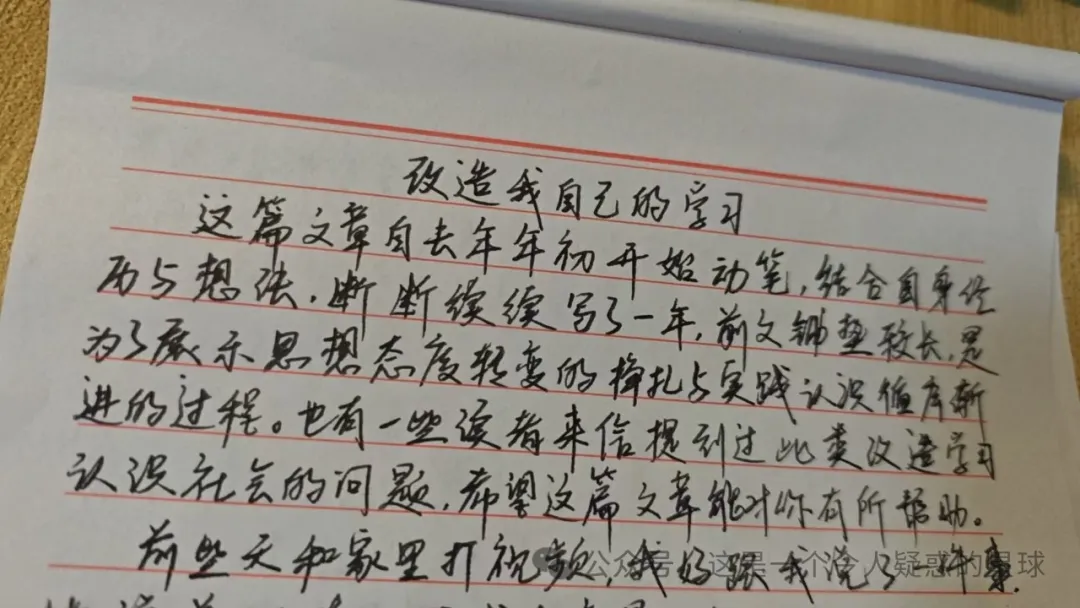 改造我自己的学习
这篇文章自去年年初开始动笔，结合自身经
历与想法，断断续续写了一年，前文铺垫较长，是
为了展示思想态度转变的挣扎与实践认识循序渐
进的过程。也有一些读者来信提到过此类改造学习
认识社会的问题，希望这篇文章能对你有所帮助。
前些天和家里打视频，我妈跟我说了一件事，
公众号 这是一个令人疑惑的星球